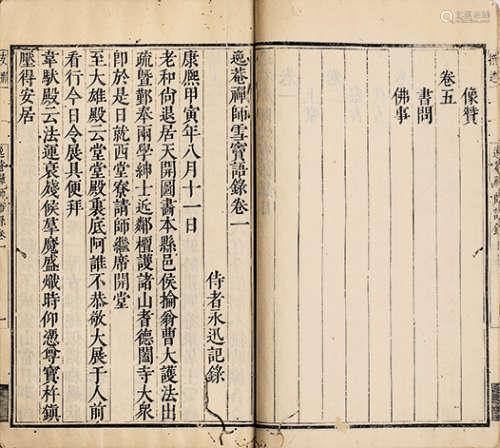 像贊
卷五
書問
佛事
逸菴禪師雪竇語錄卷一
侍者永迅記錄
康熙甲寅年八月十一日
老和尚退居天開圖畵本縣邑侯掄翁曹大護法出
疏暨鄞奉兩學紳士近鄰檀護諸山耆德闔寺大衆
卽於是日就西堂寮請師繼席開堂
至大雄殿云堂堂殿裏底阿誰不恭敬大展于人前
看行今日令展具便拜
韋馱殿云法運衰殘候羣魔盛熾時仰憑尊寶杵鎭
壓得安居